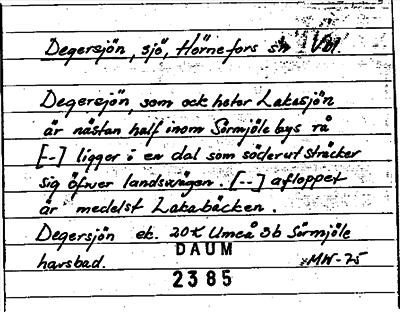 Degersjön, sjö, Hörnefors sn Vbt.
Degersjön, som ock heter Lakasjön
är nästan half inom Sörmjöle bys rå
[--] ligger i en dal som söderut sträcker
sig öfwer landswägen. [--] afloppet
är medelst Lakabäcken.
Degersjön ek. 20K Umeå 3b Sörmjöle
havsbad.
DAUM
MW-75
2385